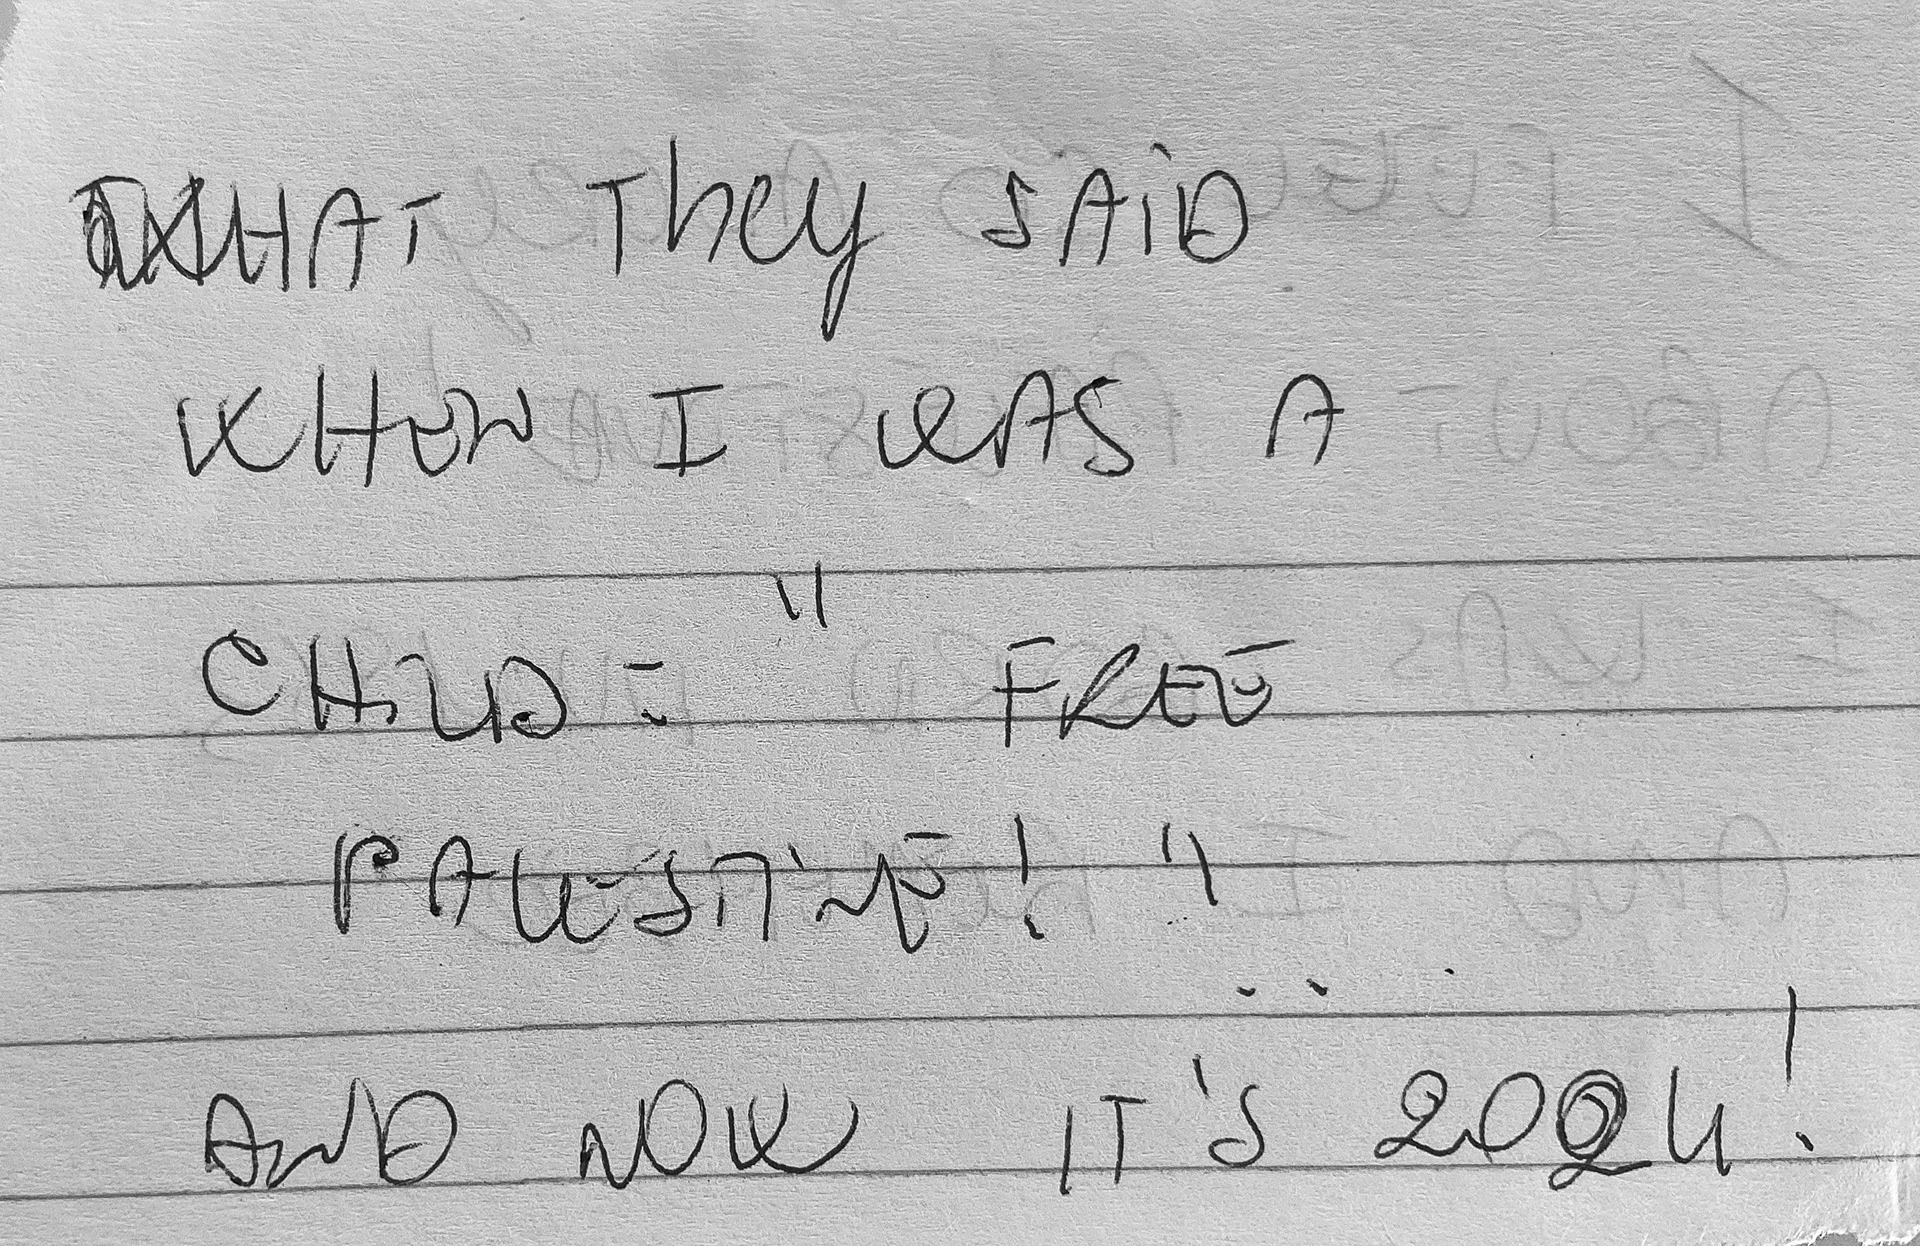 WHAT They SAID
WHEN I WAS A
CHILD: " FREE
PALESTINE! "
AND NOW IT'S 2024!